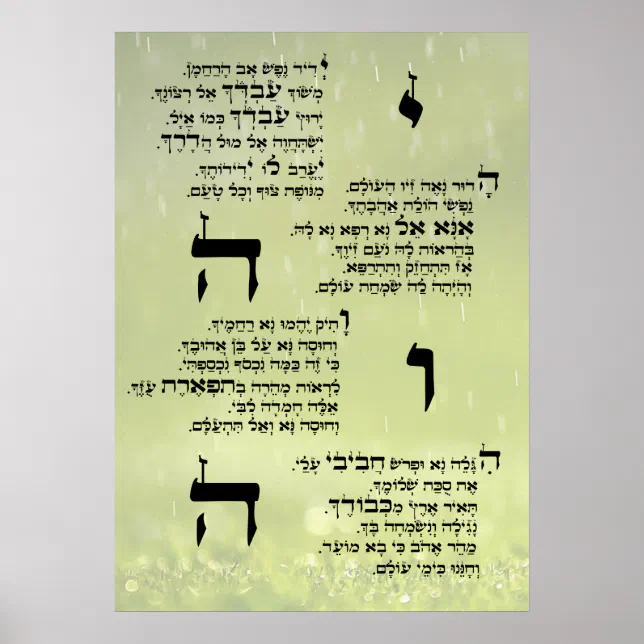 יְדִיד נֶפֶשׁ אָב הָרַחֲמָן.
מְשׁוֹךְ עַבְדְּךָ אֶל רְצוֹנֶךָ.
יָרוּץ עַבְדְּךָ כְּמוֹ אַיָּל.
יִשְׁתַּחֲוֶה אֶל מוּל הֲדָרֶךָ.
יֶעֱרַב לוֹ יְדִידוֹתֶךָ.
מִנּוֹפֶת צוּף וְכָל טָעַם.
י
הָדוּר נָאֶה זִיו הָעוֹלָם.
נַפְשִׁי חוֹלַת אַהֲבָתֶךָ.
אָנָּא אֵל נָא רְפָא נָא לָהּ.
בְּהַרְאוֹת לָהּ נֹעַם זִיוֶךָ.
אָז תִּתְחַזֵּק וְתִתְרַפֵּא.
וְהָיְתָה לָהּ שִׂמְחַת עוֹלָם.
ה
וָתִיק יֶהֱמוּ נָא רַחֲמֶיךָ.
וְחוּסָה נָּא עַל בֵּן אֲהוּבֶךָ.
כִּי זֶה כַּמָּה נִכְסֹף נִכְסַפְתִּי.
לִרְאוֹת מְהֵרָה בְּתִפְאֶרֶת עֻזֶּךָ.
אֵלֶּה חָמְדָה לִבִּי.
וְחוּסָה נָּא וְאַל תִּתְעַלָּם.
ו
הִגָּלֵה נָא וּפְרֹשׂ חֲבִיבִי עָלַי.
אֶת סֻכַּת שְׁלוֹמֶךָ.
תָּאִיר אֶרֶץ מִכְּבוֹדֶךָ.
נָגִילָה וְנִשְׂמְחָה בָּךְ.
מַהֵר אֱהֹב כִּי בָא מוֹעֵד.
וְחָנֵּנוּ כִּימֵי עוֹלָם.
ה